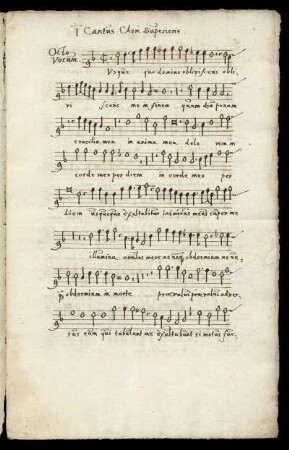 I Cantus Chori Superioris
Octo
Vocum
Vsque quo domine oblivisceris obli
vi sceris me in finem quam diu ponam
consilia mea in anima mea dolo rem in
corde meo per diem in corde meo per
diem usquequo exaltabitur inimicus meus super me
illumina oculos meos ne unq obdormiam ne un-
q obdormiam in morte prævalui prævalui adver-
sus eum qui tribulant me exultabunt si motus fue-